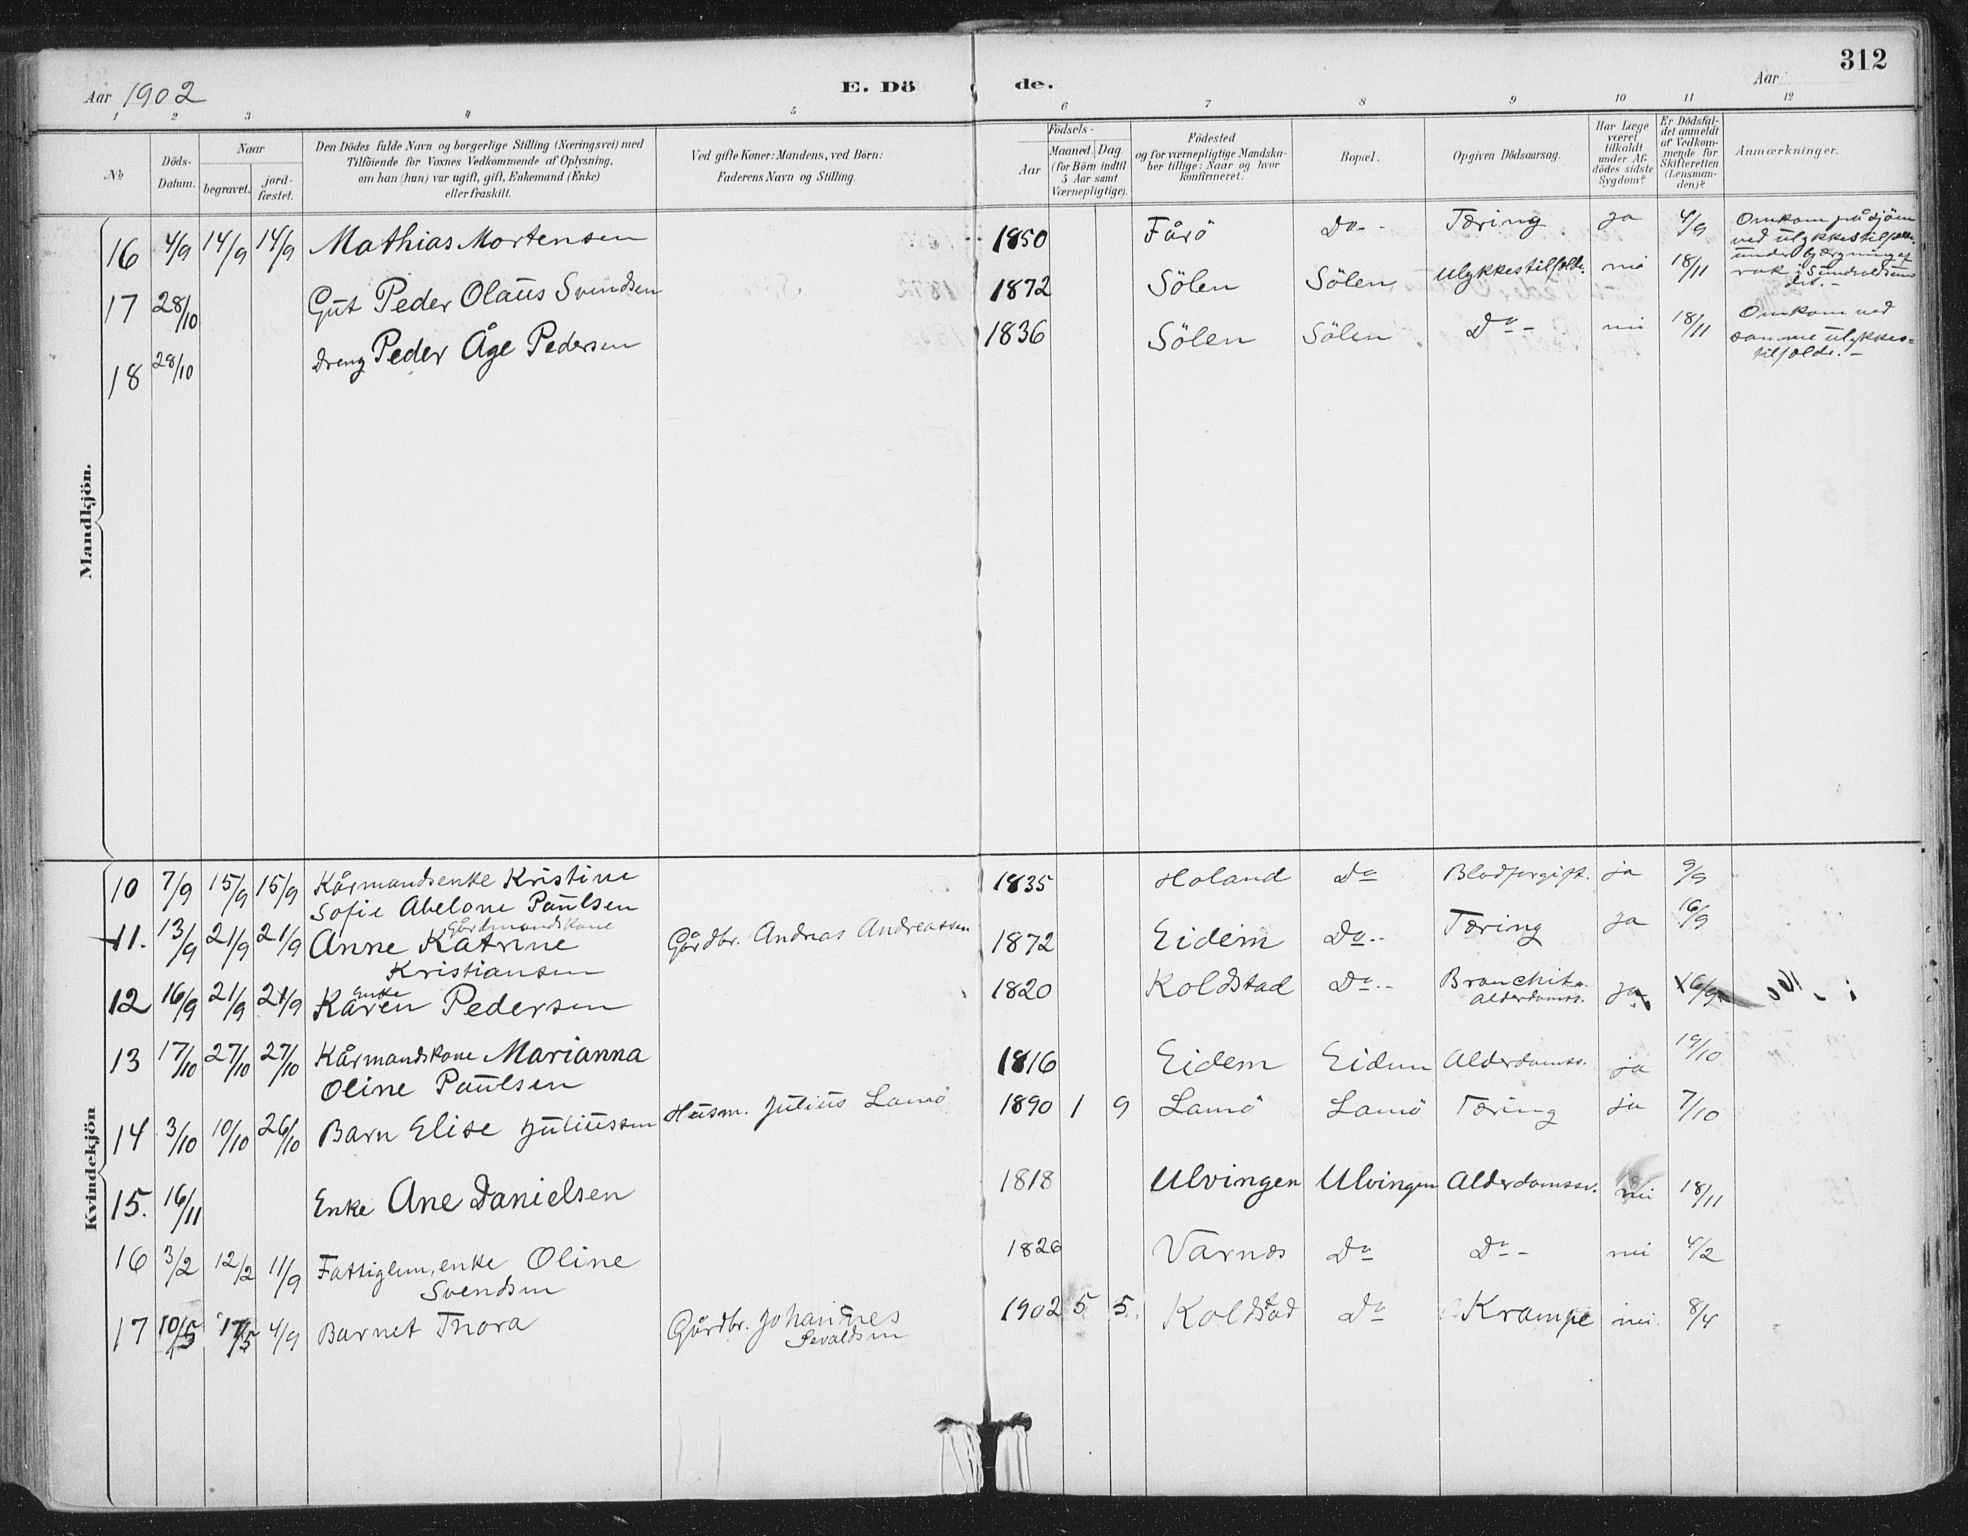 312
Aar 1902
E. Dö
de.
Aar
1 2 3 4 5 6 7 8 9 10 11 12
№
Döds-
Datum.
Naar
begravet.
jord-
fæstet.
Den Dödes fulde Navn og borgerlige Stilling (Næringsvei) med
Tilföiende for Voxnes Vedkommende af Oplysning,
om han (hun) var ugift, gift, Enkemand (Enke)
eller fraskilt.
Ved gifte Koner: Mandens, ved Börn:
Faderens Navn og Stilling.
Födsels-
Aar
Maaned. Dag.
(for Börn indtil
5 Aar samt
Værnepligtige).
Födested
og for værnepligtige Mandska-
ber tillige: Naar og hvor
konfirmeret.
Bopæl.
Opgiven Dödsaarsag.
Har Læge
været
tilkaldt
under Af-
dödes sidste
Sygdom?
Er Dödsfal-
det anmeldt
af Vedkom-
mende for
Skifteretten
(Lensman-
den)?
Anmærkninger.
Mandkjön.
16 4/9 14/9 14/9 Mathias Mortensen 1850 Fårö Do - Tæring ja 4/9
17 28/10 Gut Peder Olaus Svendsen 1872 Sölen Sölen Ulykkestilfælde. nei 18/11 Omkom på sjöen
ved ulykkestilfælde
under bjærgning af
vrak i
det. -
18 28/10 Dreng Peder Åge Pedersen 1836 Sölen Sölen Do - nei 18/11 Omkom ved
samme ulykkes=
tilfælde. -
Kvindekjön
10 7/9 15/9 15/9 Kårmandsenke Kristine
Sofie Abelone Paulsen 1835 Holand Do Blodforgift. ja 9/9
11. 13/9 21/9 21/9 Gårdmandskone
Anne Katrine
Kristiansen Gårdbr. Andreas Andreassen 1872 Eidem Do.. Tæring ja 16/9
12 16/9 21/9 21/9 Enke
Karen Pedersen 1820 Koldstad Do.. Bronchit
Alderdomss. ja 16/9
13 17/10 27/10 27/10 Kårmandskone Marianna
Oline Paulsen 1816 Eidem Eidem Alderdomss. ja 19/10
14 3/10 10/10 26/10 Barn Elise Juliussen Husm. Julius Lamö 1890 1 9 Lamö Lamö Tæring ja 7/10
15. 16/11 Enke Ane Danielsen 1818 Ulvingen Ulvingen Alderdomssv. nei 18/11
16 3/2 12/2 11/9 Fattiglem, enke Oline
Svendsen 1826 Varnæs Do Do - nei 4/2
17 10/5 17/5 4/9 Barnet Thora Gårdbr. Johannes
Sevaldsen 1902 5 5. Koldstad Do Krampe nei 8/4